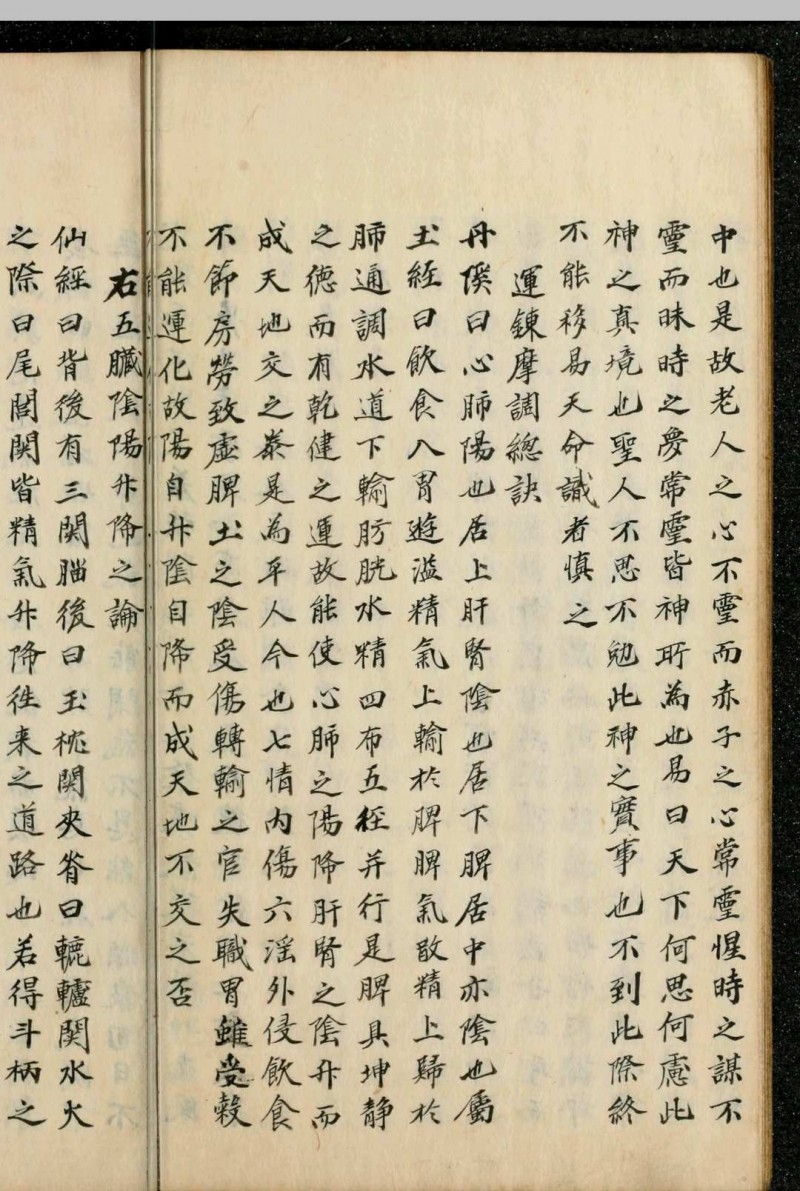 中也是故老人之心不霊而赤子之心常霊惺時之謀不
霊而昧時之夢常霊皆神所為也易曰天下何思何慮此
神之真境也聖人不思不勉此神之實事也不到此際終
不能移易天命識者慎之
運鍊摩調總訣
丹溪曰心肺陽也居上肝腎陰也居下脾居中亦陰也屬
土経曰飲食入胃遊溢精氣上輸於脾脾氣散精上歸於
肺通調水道下輸肪胱水精四布五経并行是脾具坤静
之德而有乾健之運故能使心肺之陽降肝腎之陰升而
成天地交之泰是為平人今也七情内傷六淫外侵飲食
不節房勞致虚脾土之陰受傷轉輸之官失職胃雖受穀
不能運化故陽自升陰自降而成天地不交之否
右五臟陰陽升降之論
仙經曰背後有三関腦後曰玉枕関夾脊曰轆轤関水火
之際曰尾閭関皆精氣升降徃来之道路也若得斗柄之